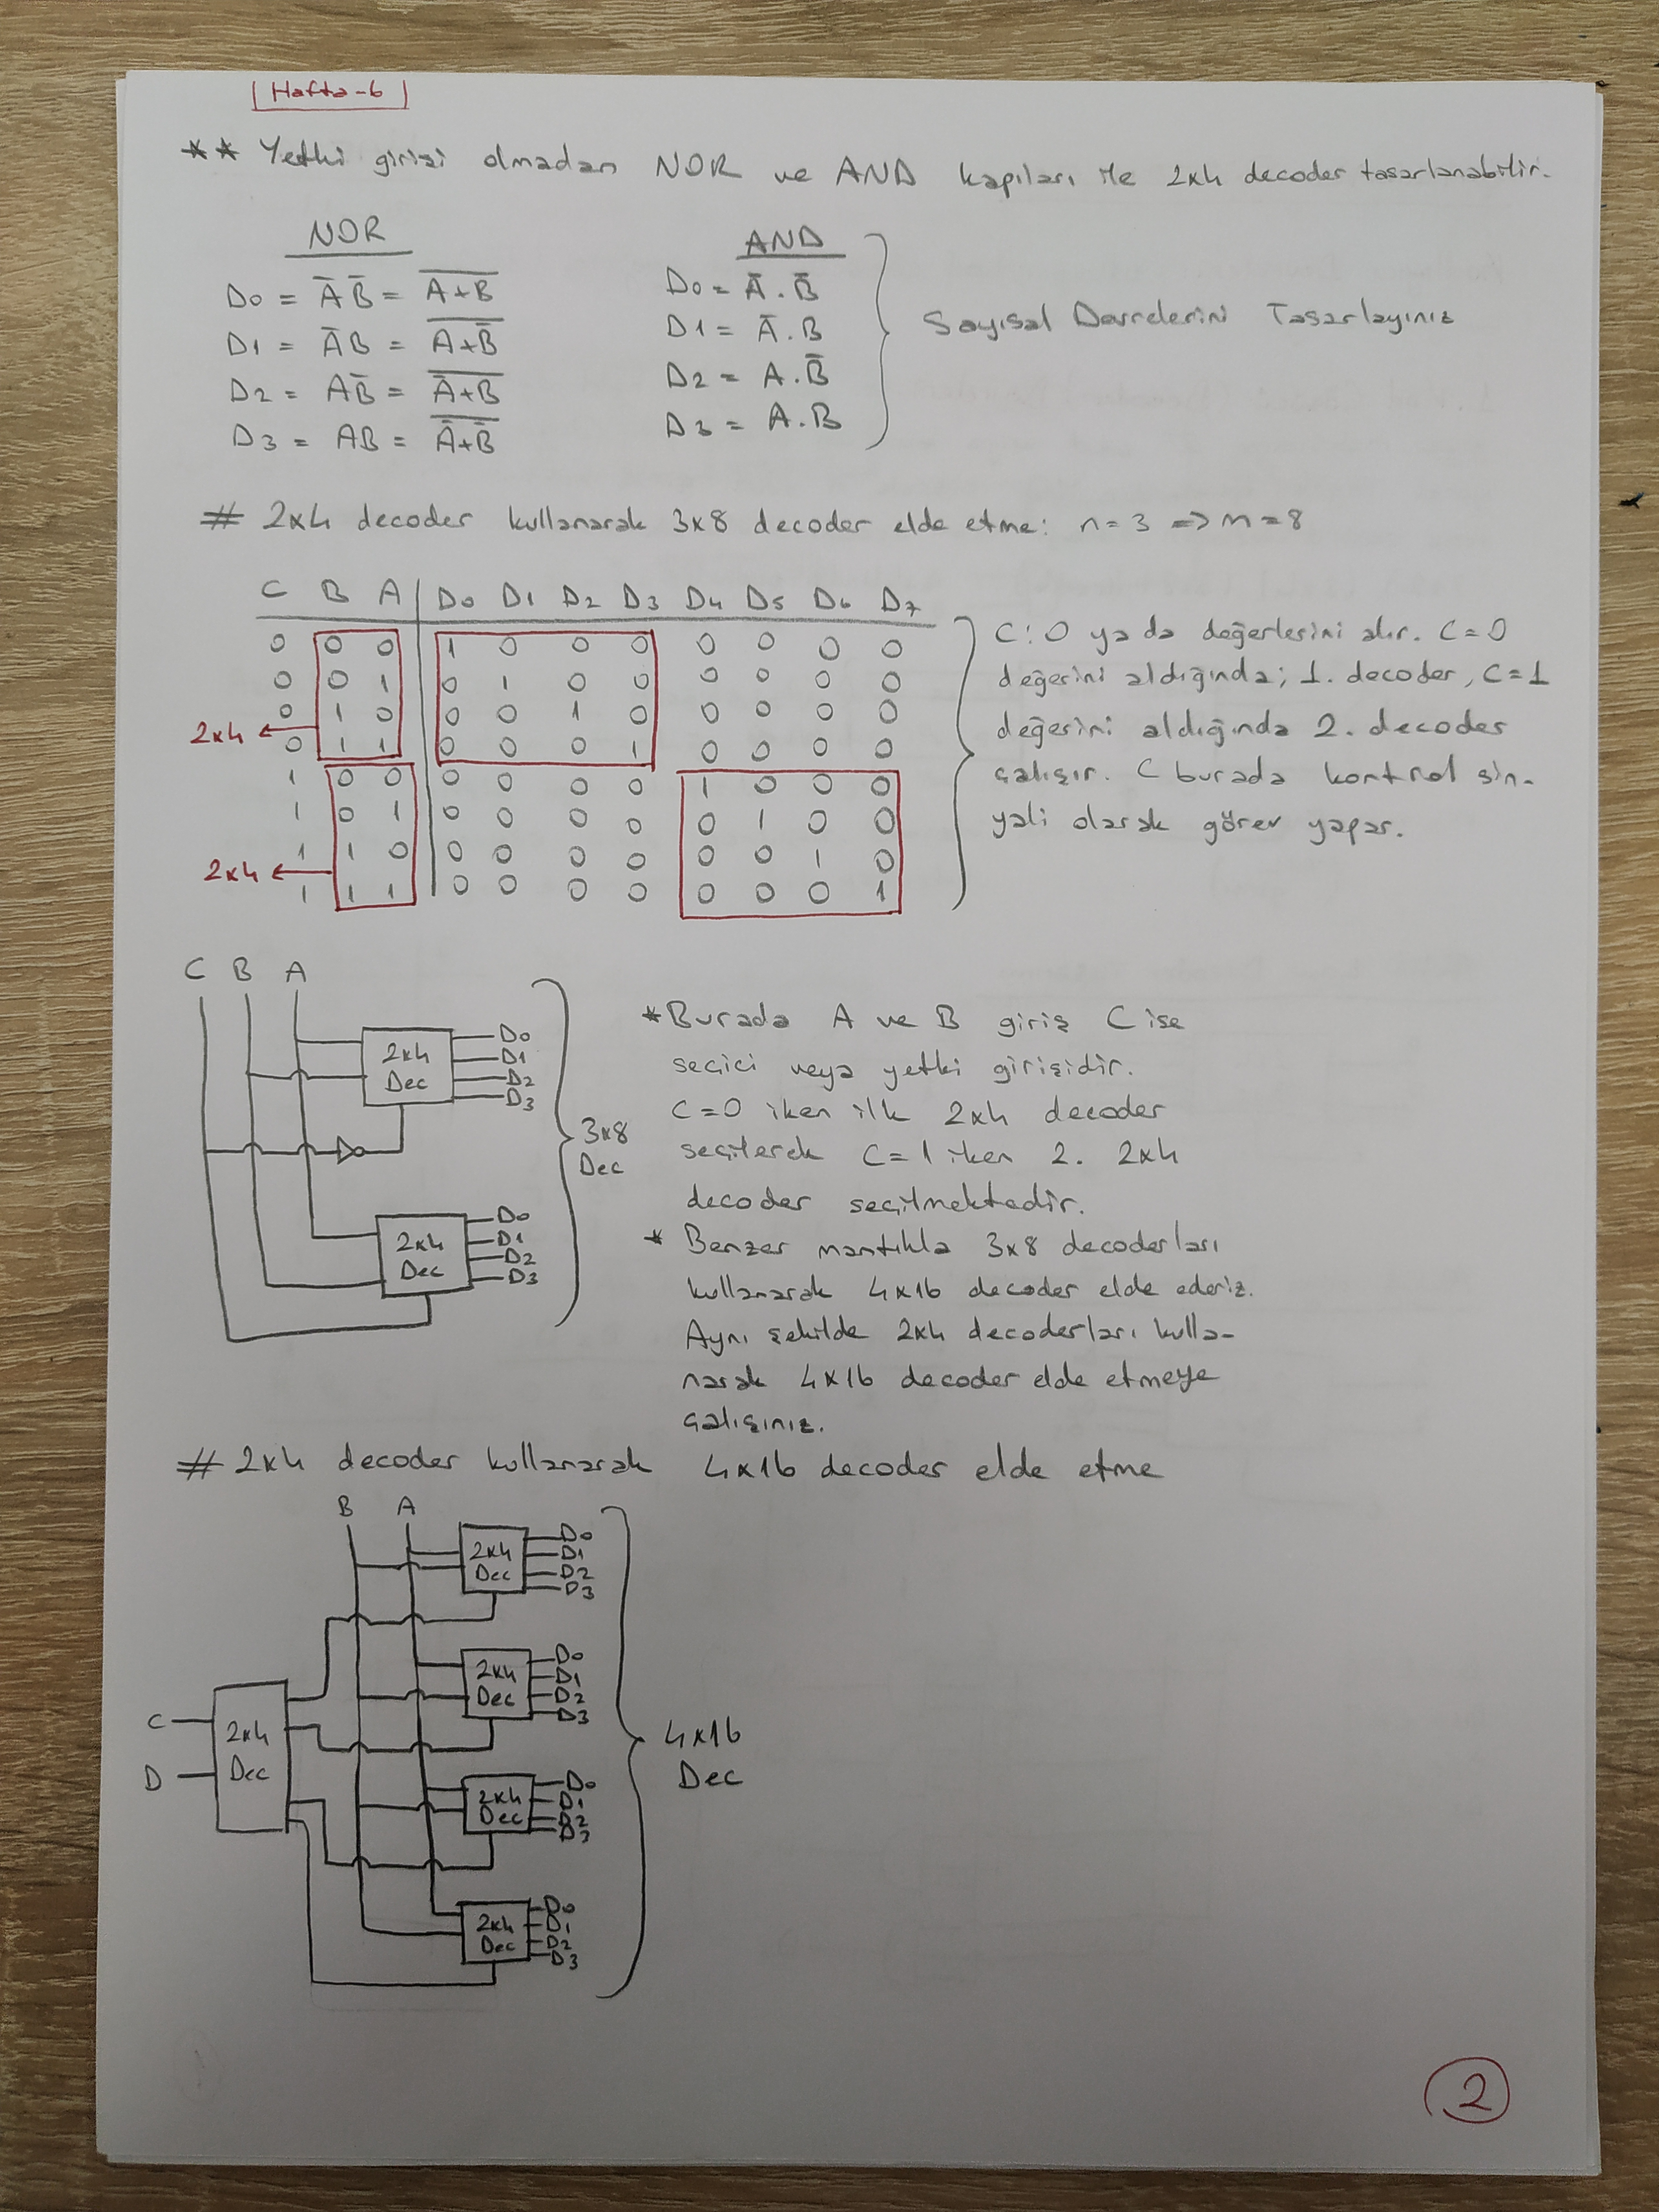 Hafta-6
** Yetki girişi olmadan NOR ve AND kapıları ile 2x4 decoder tasarlanabilir.
NOR
D0 = A̅B̅ = \overline{A+B}
D1 = A̅B = \overline{A+B̅}
D2 = AB̅ = \overline{A̅+B}
D3 = AB = \overline{A̅+B̅}
AND
D0 = A̅.B̅
D1 = A̅.B
D2 = A.B̅
D3 = A.B
Sayısal Devrelerin Tasarlayınız
# 2x4 decoder kullanarak 3x8 decoder elde etme: n=3 => m=8
C B A D0 D1 D2 D3 D4 D5 D6 D7
0 0 0 1 0 0 0 0 0 0 0
0 0 1 0 1 0 0 0 0 0 0
0 1 0 0 0 1 0 0 0 0 0
0 1 1 0 0 0 1 0 0 0 0
1 0 0 0 0 0 0 1 0 0 0
1 0 1 0 0 0 0 0 1 0 0
1 1 0 0 0 0 0 0 0 1 0
1 1 1 0 0 0 0 0 0 0 1
2x4
2x4
C: 0 yada değerlerini alır. C=0
değerini aldığında; 1. decoder, C=1
değerini aldığında 2. decoder
çalışır. C burada kontrol sin-
yali olarak görev yapar.
C B A
2x4
Dec
D0
D1
D2
D3
2x4
Dec
D0
D1
D2
D3
3x8
Dec
* Burada A ve B giriş C ise
seçici veya yetki girişidir.
C=0 iken ilk 2x4 decoder
seçilerek C=1 iken 2. 2x4
decoder seçilmektedir.
* Benzer mantıkla 3x8 decoderları
kullanarak 4x16 decoder elde ederiz.
Aynı şekilde 2x4 decoderları kulla-
narak 4x16 decoder elde etmeye
çalışınız.
# 2x4 decoder kullanarak 4x16 decoder elde etme
B A
C
D
2x4
Dec
2x4
Dec
D0
D1
D2
D3
2x4
Dec
D0
D1
D2
D3
2x4
Dec
D0
D1
D2
D3
2x4
Dec
D0
D1
D2
D3
4x16
Dec
2